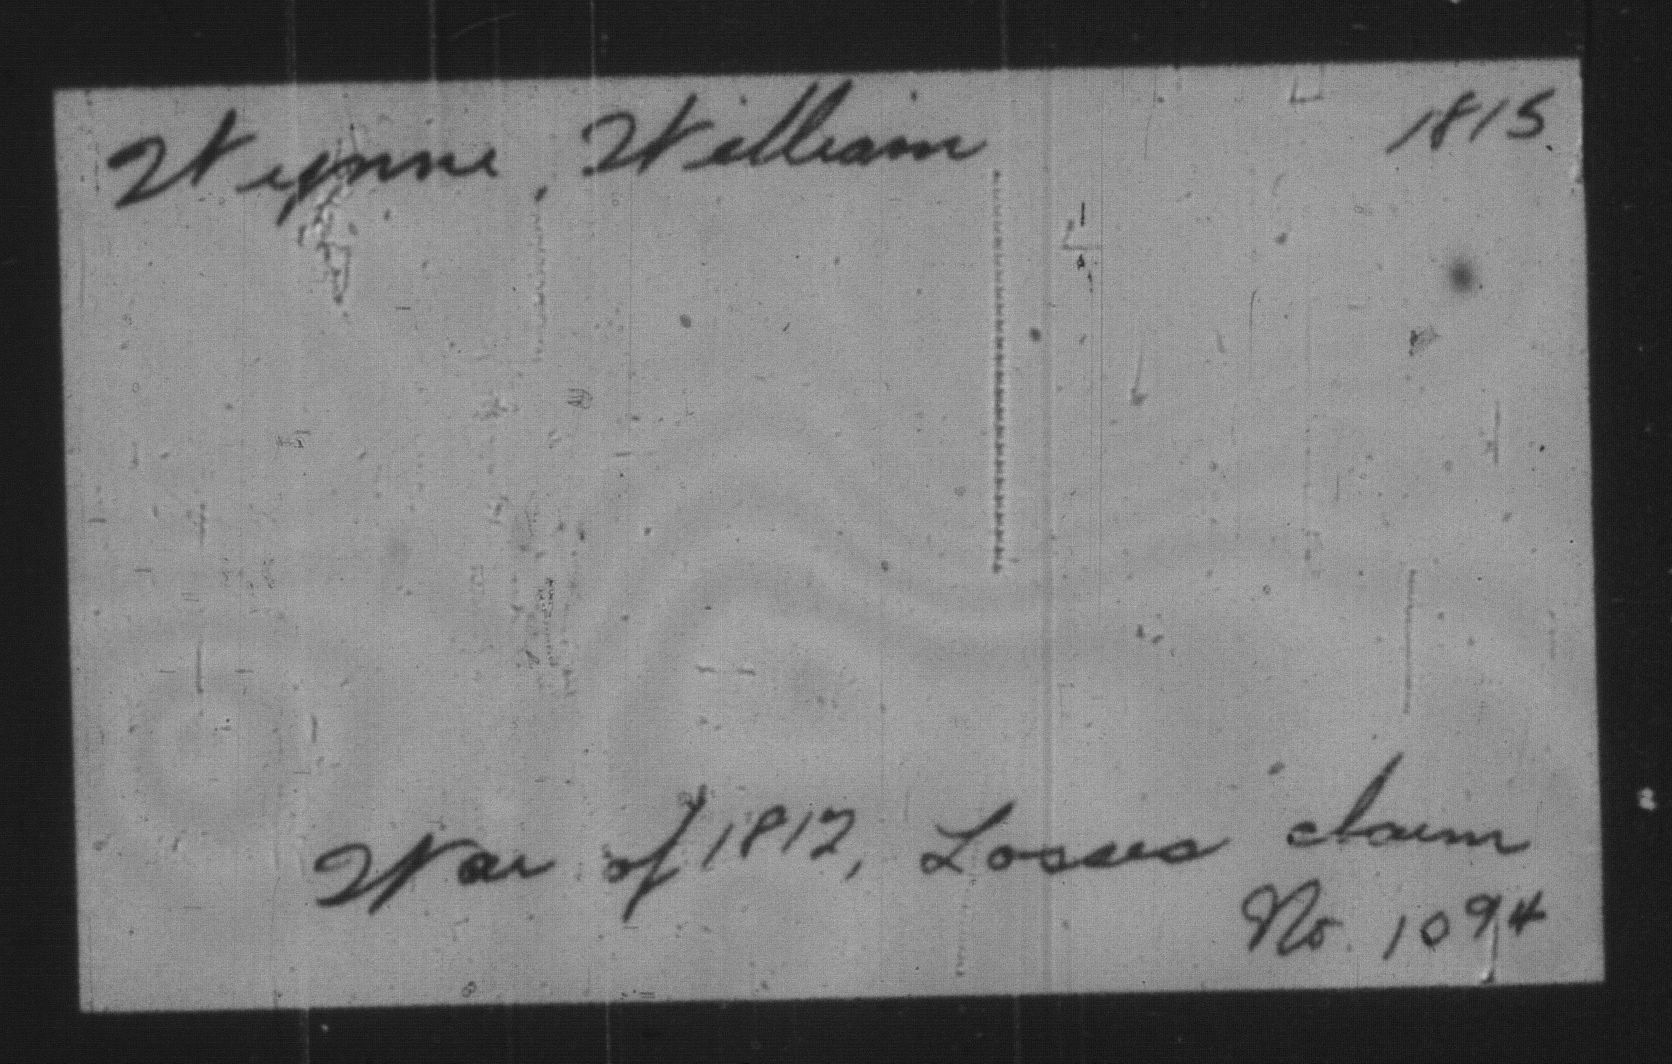 Wynne, William 1815.
War of 1812, Losses claim
No. 1094